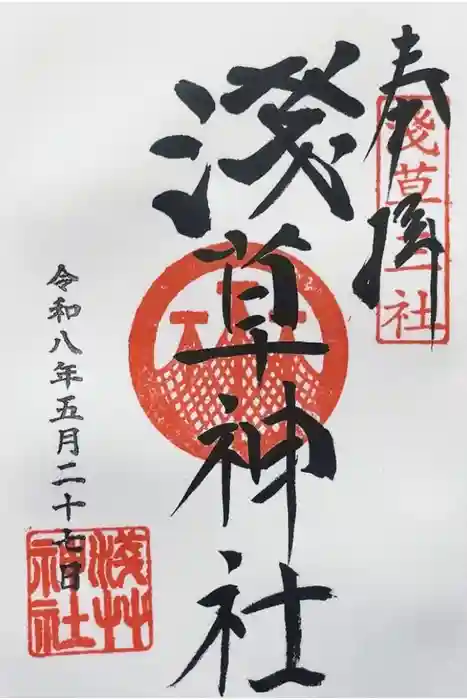 奉拝
淺草三社
淺草神社
令和八年五月二十七日
淺草
神社